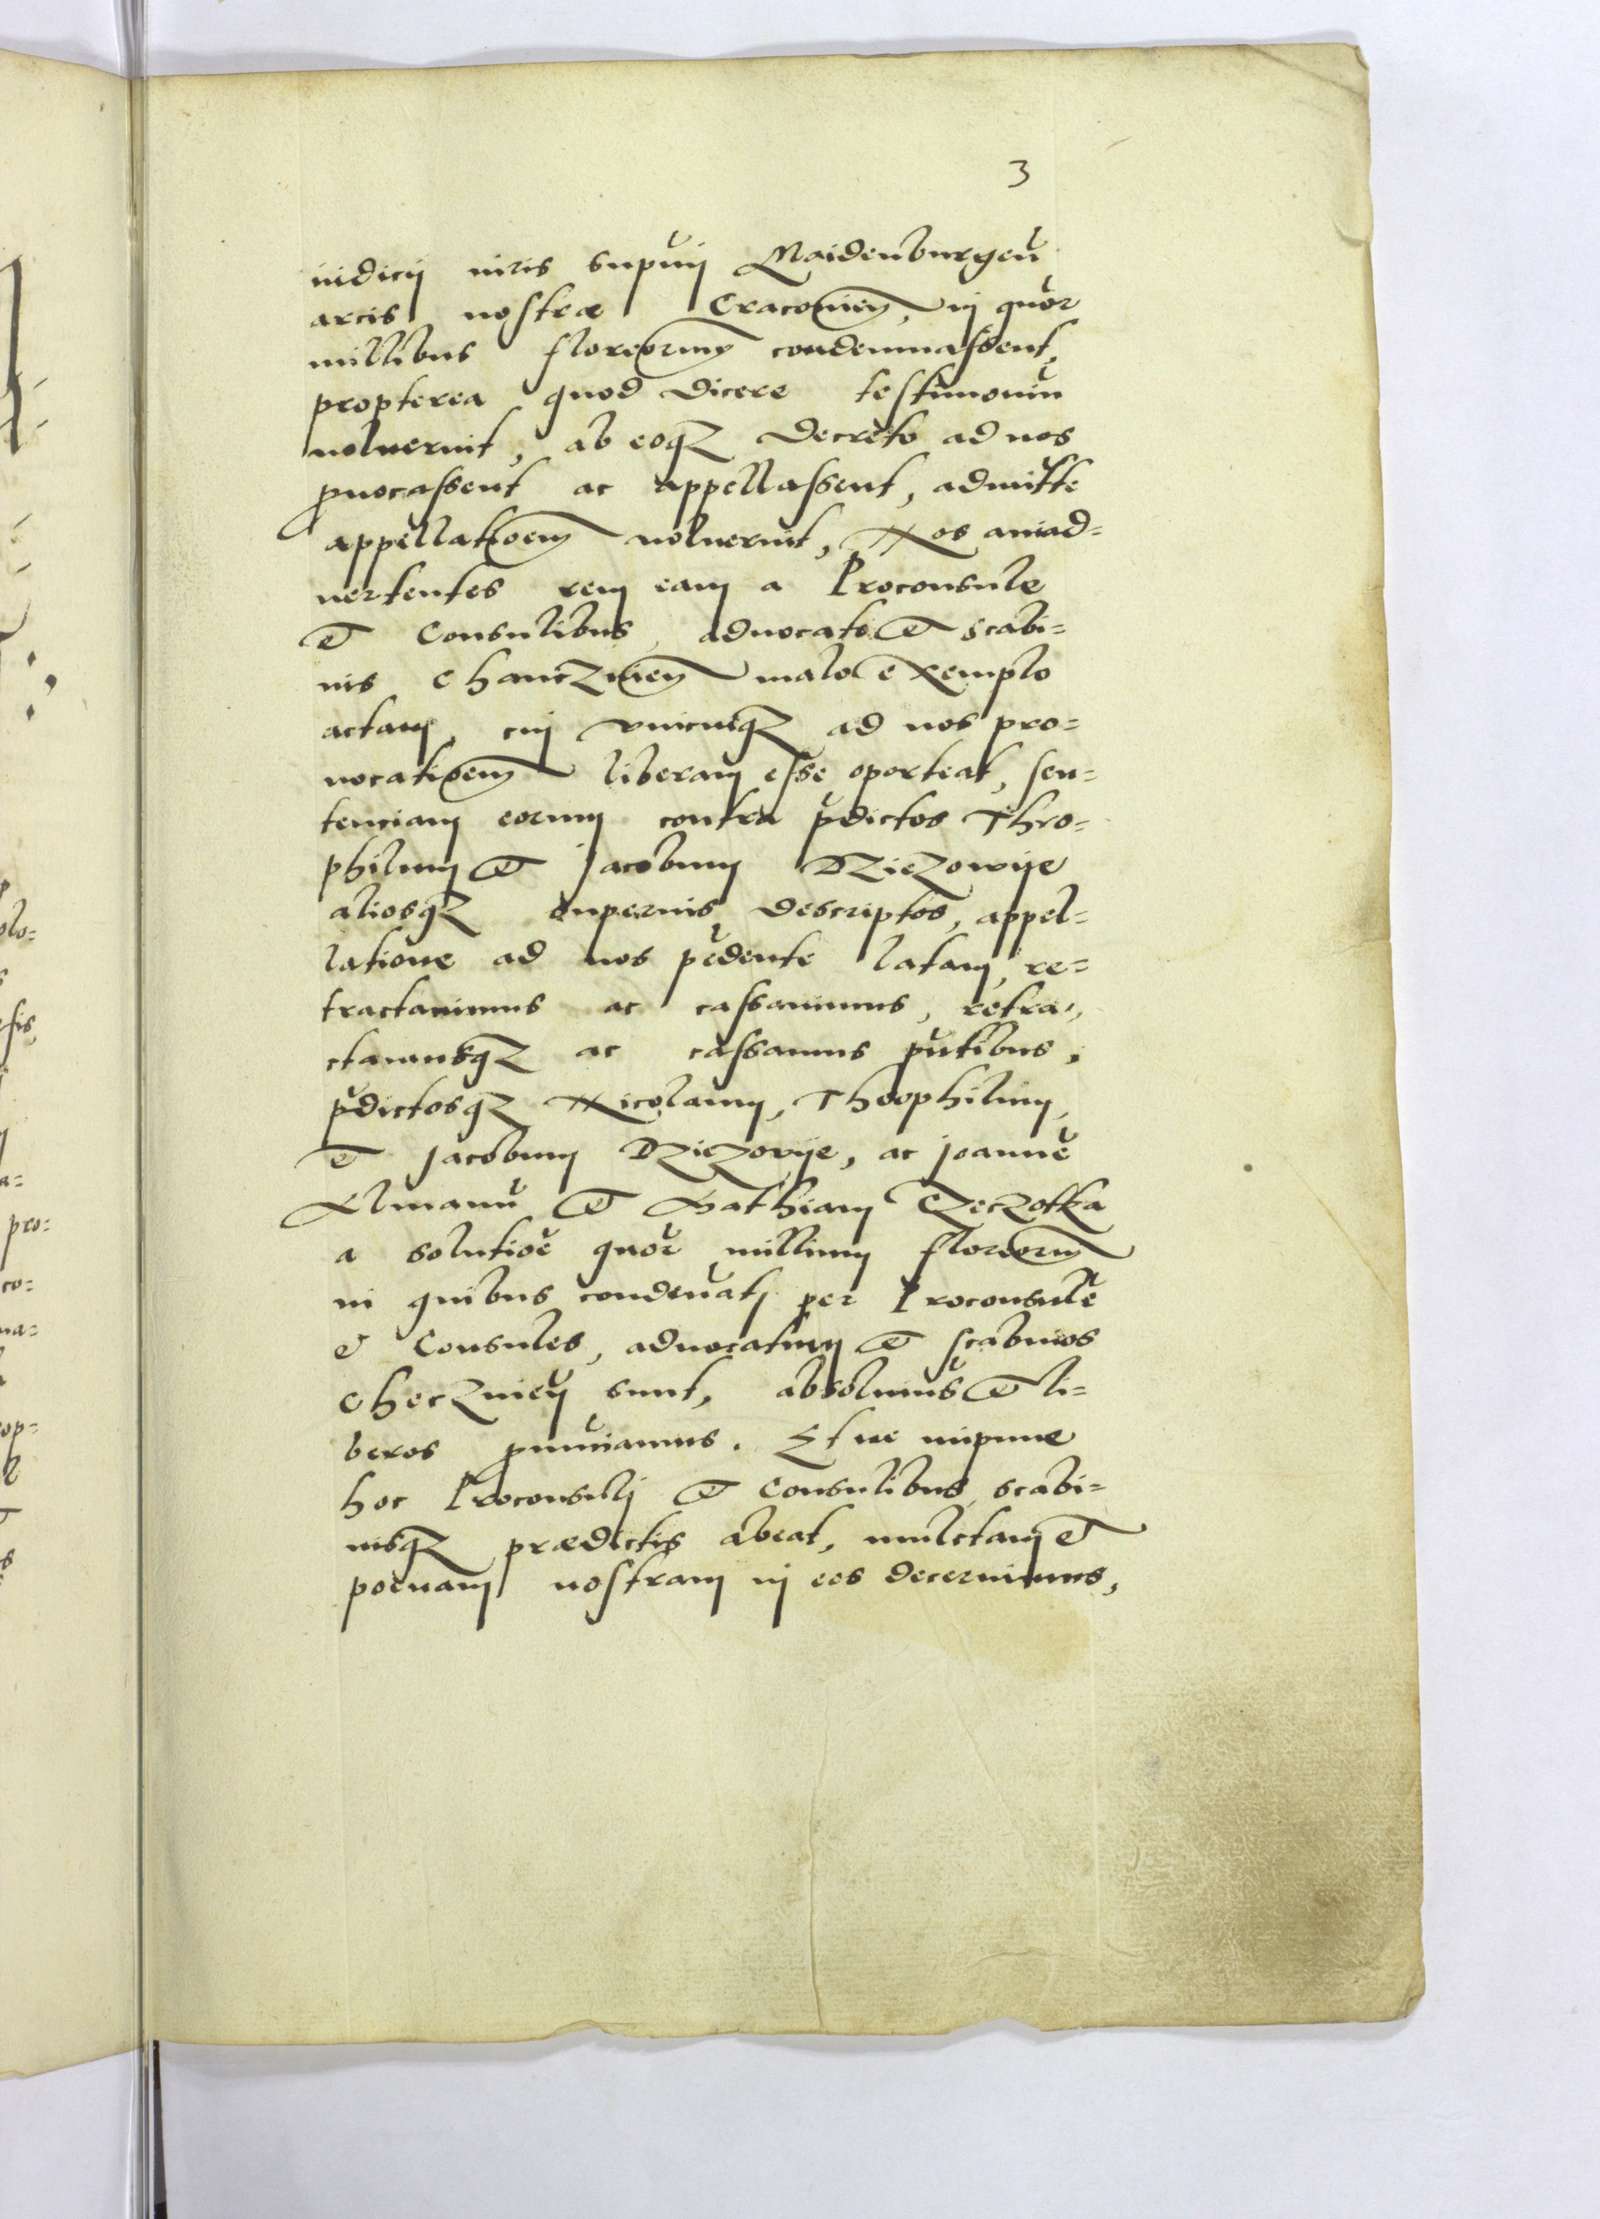 3
iudicij iuris supmj Maidenburgeñ
arcis nostræ Cracovieñ, in quor
millibus floreorum condemnassent,
propterea quod dicere testimoniũ
noluerint, ab eoq3 decreto ad nos
provocassent ac appellassent, admitte
appellatioem noluerint, Nos aniad=
uertentes rem eam a Proconsule
et Consulibus, aduocato et scabi=
nis Chanczinieñ malo exemplo
actam, cum vnicuiq3 ad nos pro=
uocatioem liberam esse oporteat, sen=
tenciam eorum contra pdictos Theo=
philum et Jacobum Dziezowije
aliosq3 superius descriptos, appel=
latione ad nos pẽdente latam, re=
tractauimus ac cassauimus, retra,,
ctamusq3 ac cassamus pñtibus,
pdictosq3 Nicolaum, Theophilum,
et Jacobum Dziezowije, ac Joannẽ
Elmanũ et Mathiam Czeczotka
a solutiõe quor millium floreorum
in quibus condẽnati per Proconsulẽ
& Consules, aduocatum et scabinos
Checznieñ sunt, absoluimus et li=
beros pnũciamus. Et ne impune
hoc Proconsuli et Consulibus, scabi=
nisq3 prædictis abeat, mulctam et
poenam nostram in eos decernimus,